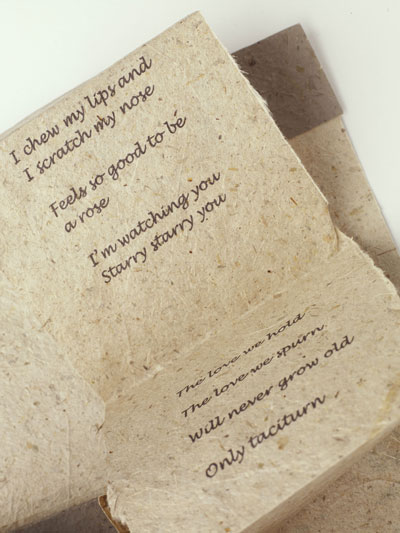 I chew my lips and
I scratch my nose
Feels so good to be
a rose
I'm watching you
Starry starry you
The love we hold
The love we spurn
Will never grow old
Only taciturn